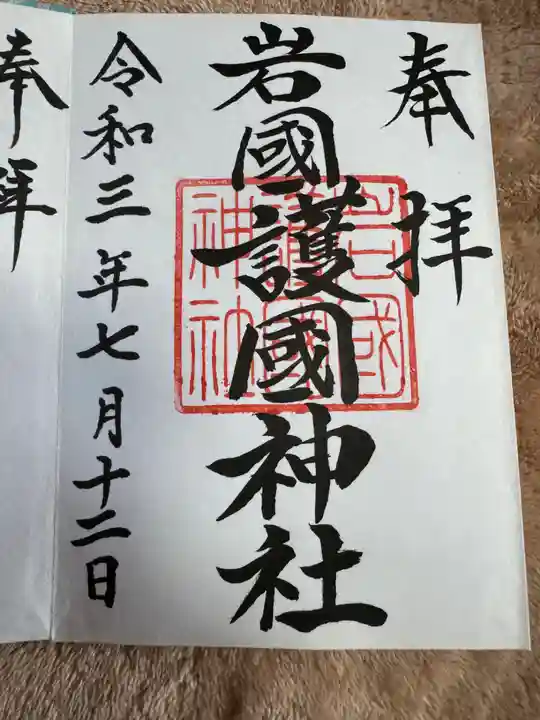 奉拝
岩國護國神社
岩国
護國
神社
令和三年七月十二日
奉拝